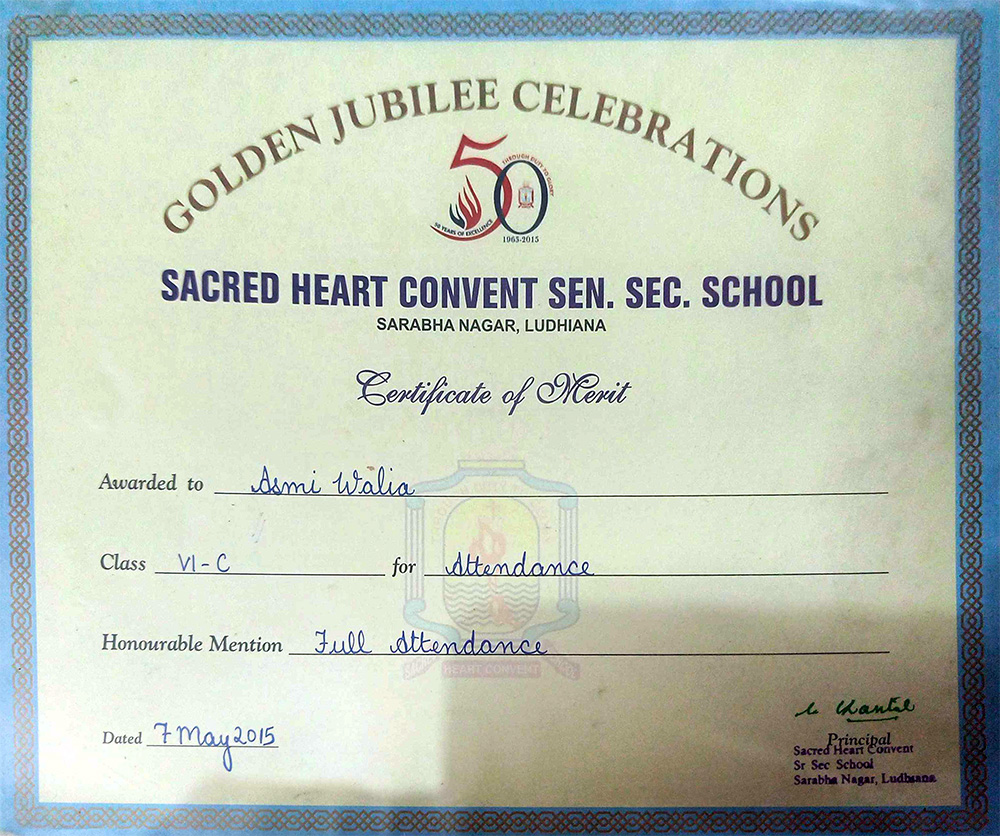 GOLDEN JUBILEE CELEBRATIONS
50
THROUGH DUTY TO GLORY
50 YEARS OF EXCELLENCE
1965-2015
SACRED HEART CONVENT SEN. SEC. SCHOOL
SARABHA NAGAR, LUDHIANA
Certificate of Merit
Awarded to Asmi Walia
Class VI-C for Attendance
Honourable Mention Full Attendance
HEART CONVENT
Dated 7 May 2015
Chantal
Principal
Sacred Heart Convent
Sr Sec School
Sarabha Nagar, Ludhiana